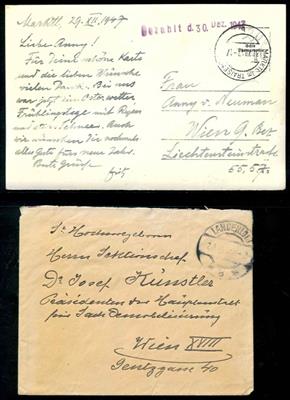 Marktl, 29.XII.1947
Liebe Anny!
Für deine schöne Karte
und die lieben Wünsche
vielen Dank. Bei uns
war jetzt ein
Frühlingstage mit Regen
und Schnee. Auch
wir wünschen Dir nochmals
alles Gute fürs neue Jahr.
Bezahlt d. 30. Dez. 1947
MARKTL IM TRAISEN
Frau
Anny v. Neuman
Wien 9. Bez
Liechtensteinstraße
55,
Sr Hochwohlgeborn
Herrn Sektionschef
Dr Josef Künstler
Präsidenten der Hauptanstalt
für Sachdemobilisierung
Wien XVIII
Gentzgasse 40